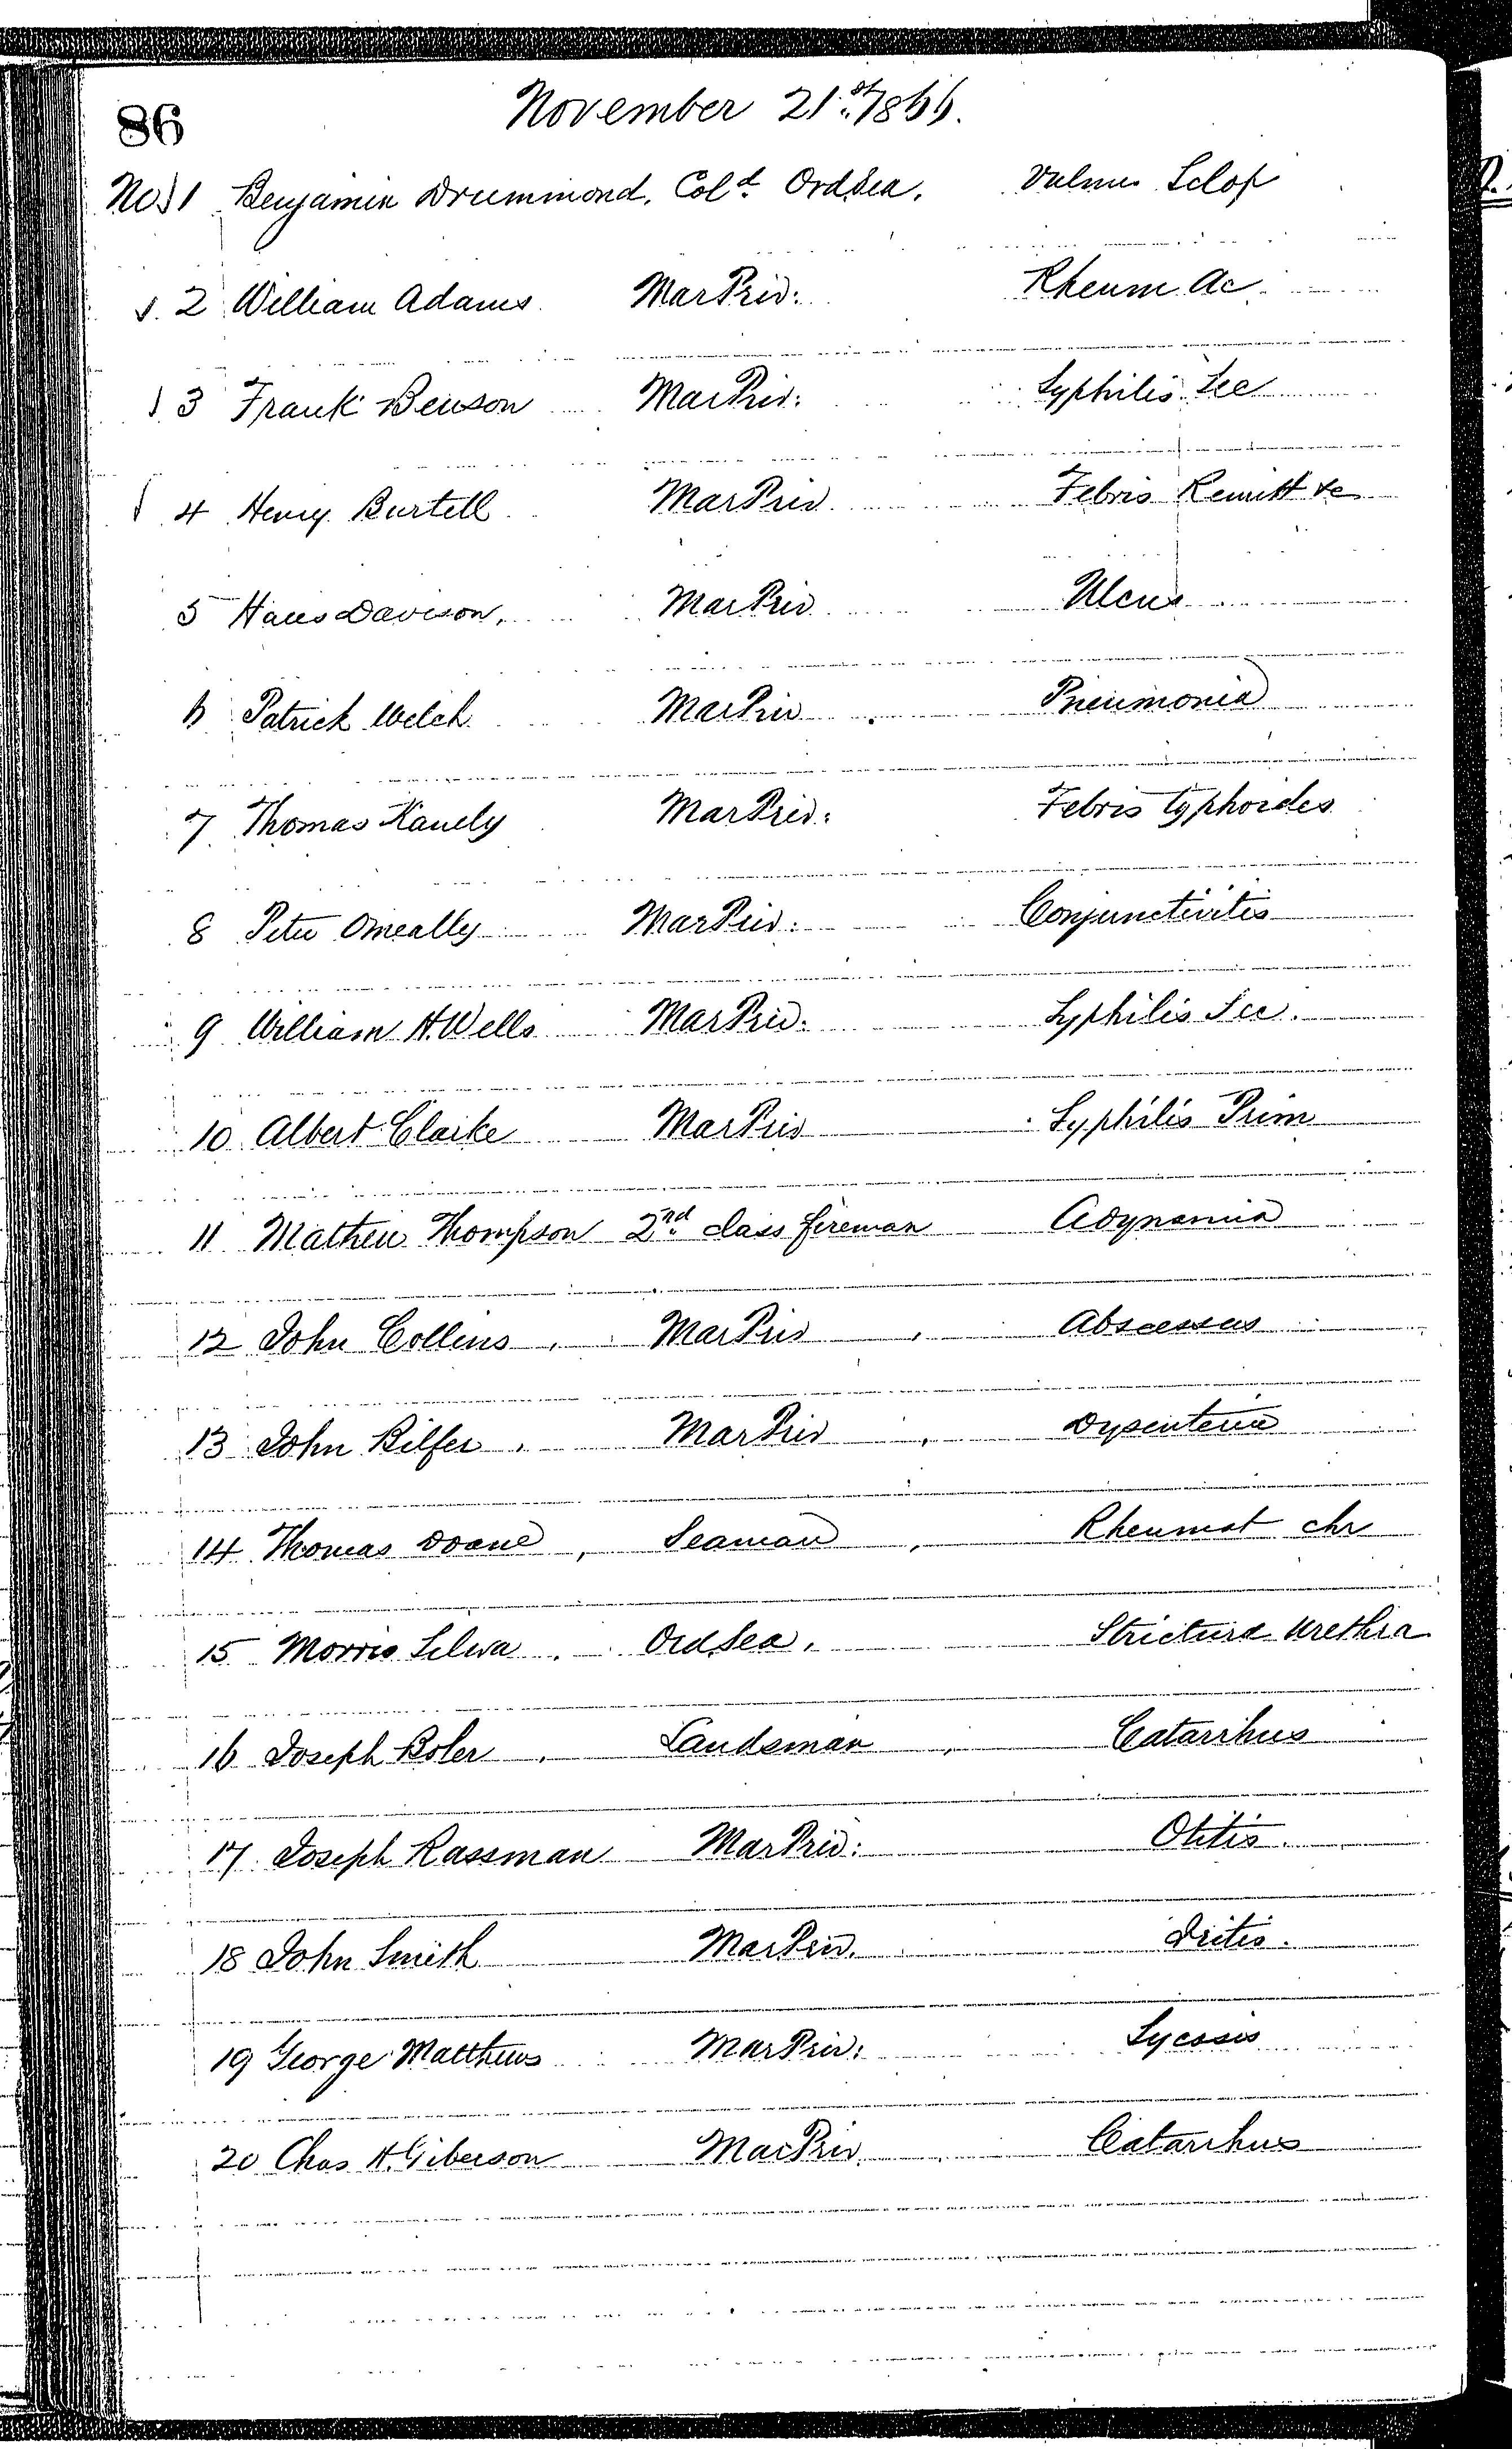 86
November 21st 1866.
No 1 Benjamin Drummond, Cold Ord Sea. Vulnus Sclop
2 William Adams MarPriv: Rheum Ac
3 Frank Benson MarPriv: Syphilis Sec
4 Henry Burtell MarPriv Febris Remitt &c
5 Hans Davison, MarPriv Ulcus
6 Patrick Welch MarPriv Pneumonia
7 Thomas Kanely MarPriv: Febris typhoides
8 Peter Omeally MarPriv: Conjunctivitis
9 William H. Wells MarPriv: Syphilis Sec.
10 Albert Clarke MarPriv Syphilis Prim
11 Mathew Thompson 2nd class fireman Adynamia
12 John Collins, MarPriv, Abscessus
13 John Bilfer, MarPriv, Dysenteria
14 Thomas Doane, Seaman, Rheumat chr
15 Morris Silva, Ord Sea, Strictura Urethra
16 Joseph Boler, Landsman, Catarrhus
17 Joseph Rassman MarPriv: Otitis.
18 John Smith MarPriv. Iritis.
19 George Matthews MarPriv: Sycosis
20 Chas H. Giberson MarPriv, Catarrhus